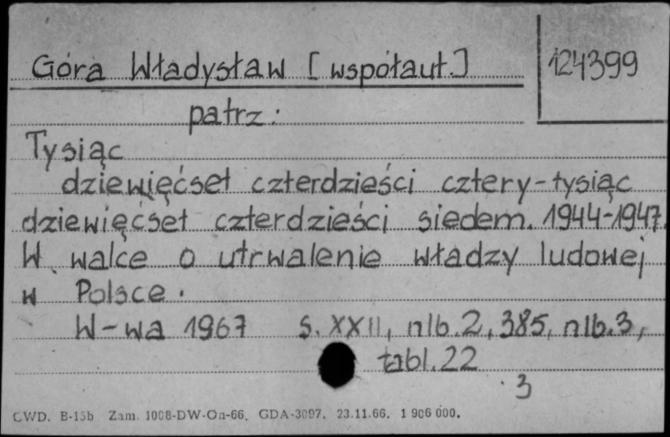 Góra Władysław [współaut.] 124399
patrz:
Tysiąc
dziewięćset czterdzieści cztery-tysiąc
dziewięćset czterdzieści siedem. 1944-1947.
W walce o utrwalenie władzy ludowej
w Polsce.
W-wa 1967 s. XXII, nlb. 2, 385, nlb. 3,
tabl. 22
3
CWD. B-15b Zam. 1008-DW-Gn-66. GDA-3097. 23.11.66. 1 906 000.